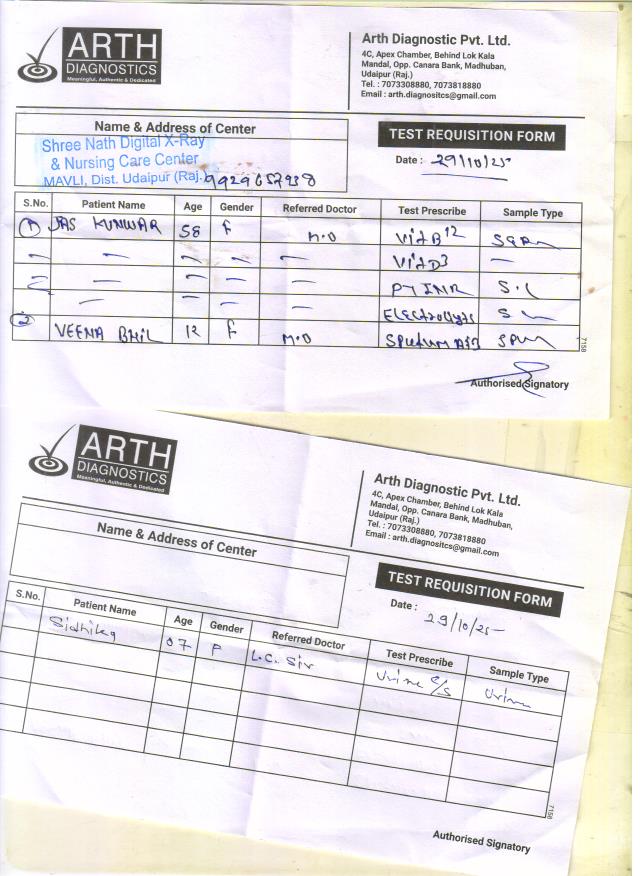 ARTH
DIAGNOSTICS
Meaningful, Authentic & Dedicated
Arth Diagnostic Pvt. Ltd.
4C, Apex Chamber, Behind Lok Kala
Mandal, Opp. Canara Bank, Madhuban,
Udaipur (Raj.)
Tel. : 7073308880, 7073818880
Email : arth.diagnositcs@gmail.com
Name & Address of Center
Shree Nath Digital X-Ray
& Nursing Care Center
MAVLI, Dist. Udaipur (Raj.) 9929657938
TEST REQUISITION FORM
Date : 29/10/25
S.No. Patient Name Age Gender Referred Doctor Test Prescribe Sample Type
1 JAS KUNWAR 58 F M.D Vit B12
Vit D3
PT INR
Electrolytes
2 VEENA BHIL 12 F M.D Sputum AFB
7158
Authorised Signatory
ARTH
DIAGNOSTICS
Meaningful, Authentic & Dedicated
Arth Diagnostic Pvt. Ltd.
4C, Apex Chamber, Behind Lok Kala
Mandal, Opp. Canara Bank, Madhuban,
Udaipur (Raj.)
Tel. : 7073308880, 7073818880
Email : arth.diagnositcs@gmail.com
Name & Address of Center
TEST REQUISITION FORM
Date : 29/10/25
S.No. Patient Name Age Gender Referred Doctor Test Prescribe Sample Type
07 F L.C. Sir Urine C/S Urine
7158
Authorised Signatory